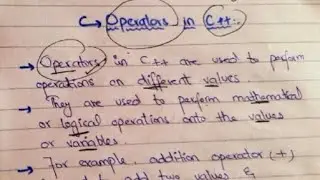 C→ Operators in C++.
→ Operators in C++ are used to perform
operations on different values
→ They are used to perform mathematical
or logical operations onto the values
or variables.
→ For example, addition operator (+)
add two values &